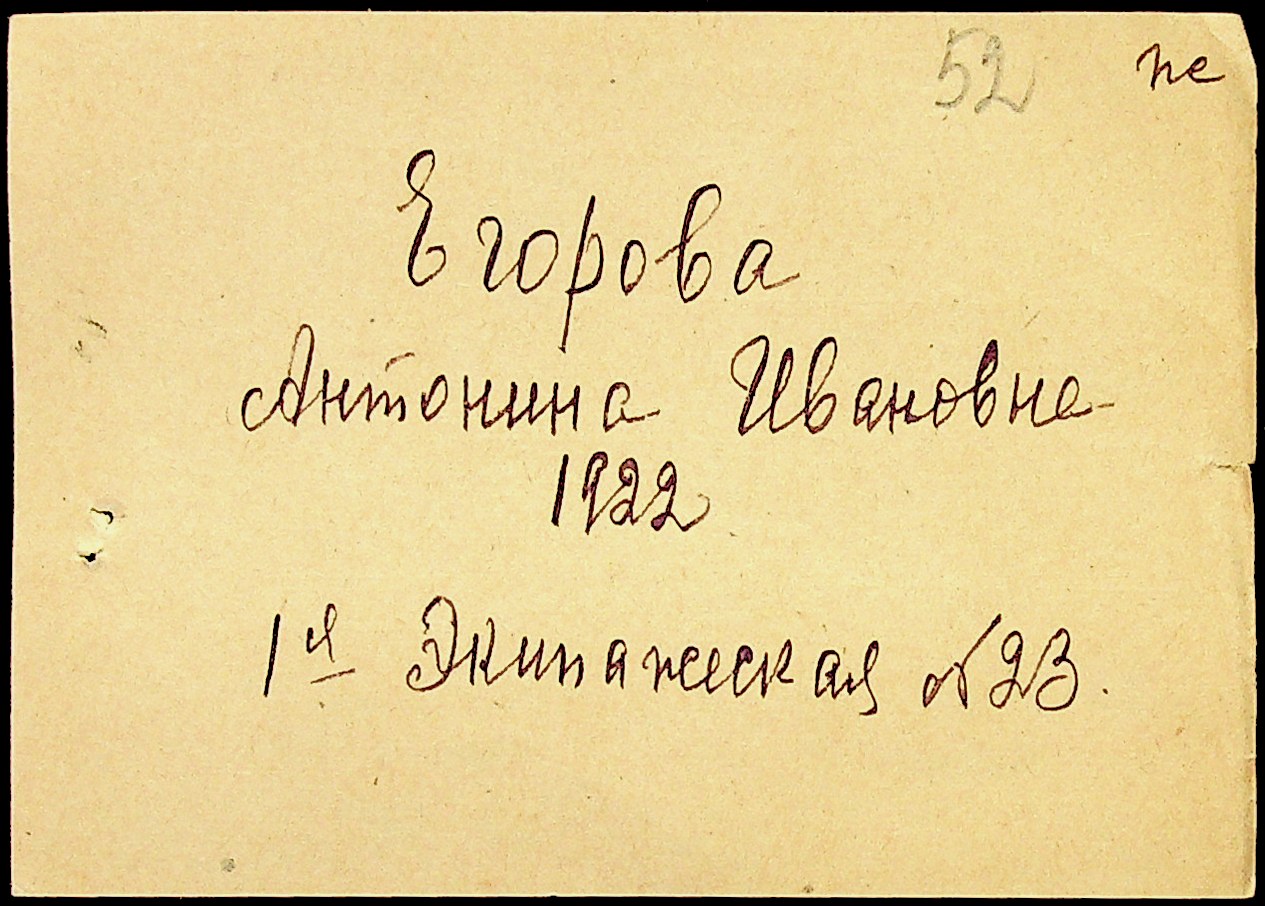 52 пе
Егорова
Антонина Ивановна
1922
1я Экипажеская №23.